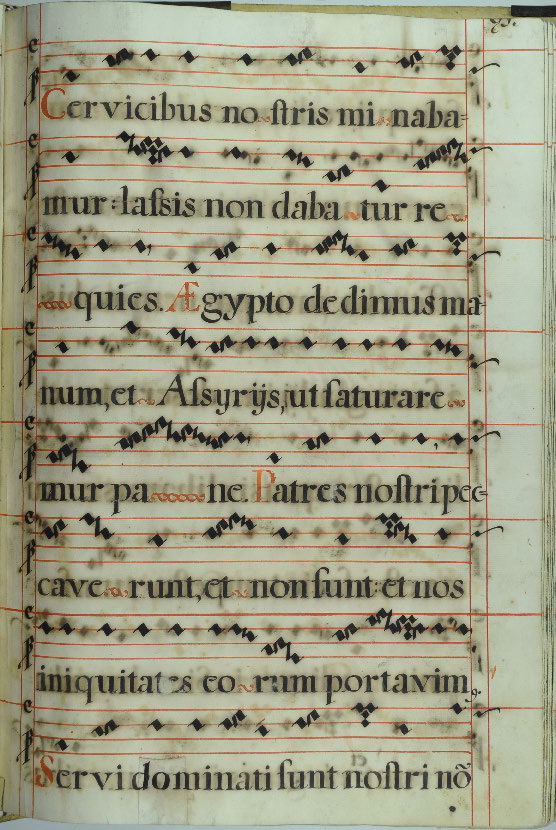 Cervicibus nostris minaba-
mur: laſsis non dabatur re
quies. Ægypto dedimus ma-
num, et Aſsyrijs, ut ſaturare
mur pane. Patres noſtri pec-
caverunt, et non ſunt: et nos
iniquitates eorum portavim9.
Servi dominati ſunt noſtri nõ